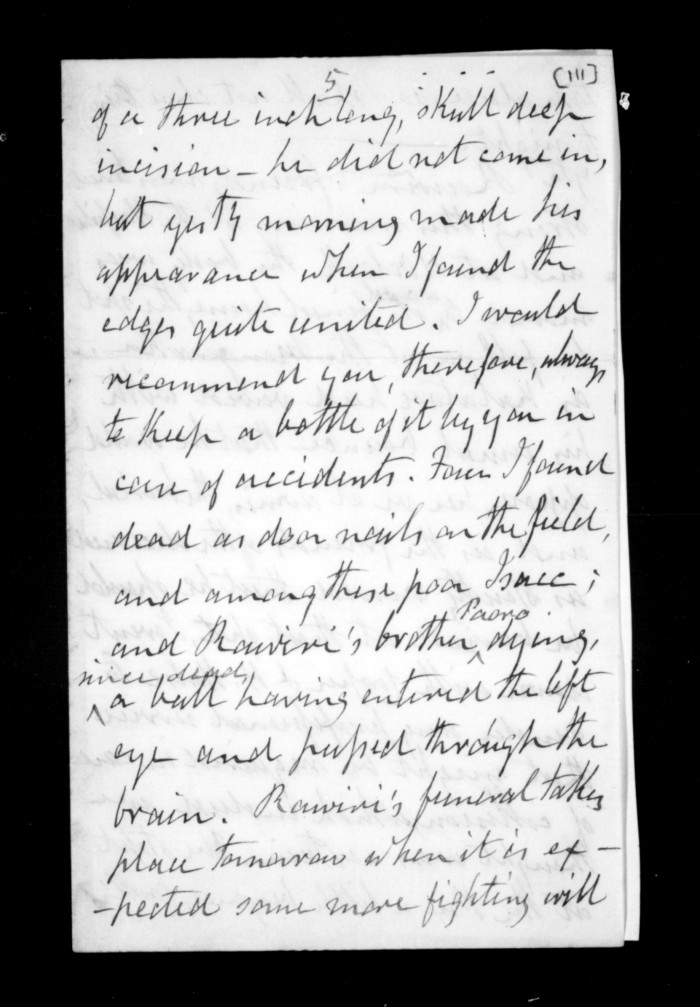 5
[111]
of a three inch long, skull deep
incision – he did not come in,
but yesty morning made his
appearance when I found the
edges quite united. I would
recommend you, therefore, always
to keep a bottle of it by you in
case of accidents. Four I found
dead as door nails on the field,
and among these poor Isaac;
and Rawiri's brother ^ Paoro dying,
^ since dead, a ball having entered the left
eye and passed through the
brain. Rawiri's funeral takes
place tomorrow when it is ex–
–pected some more fighting will